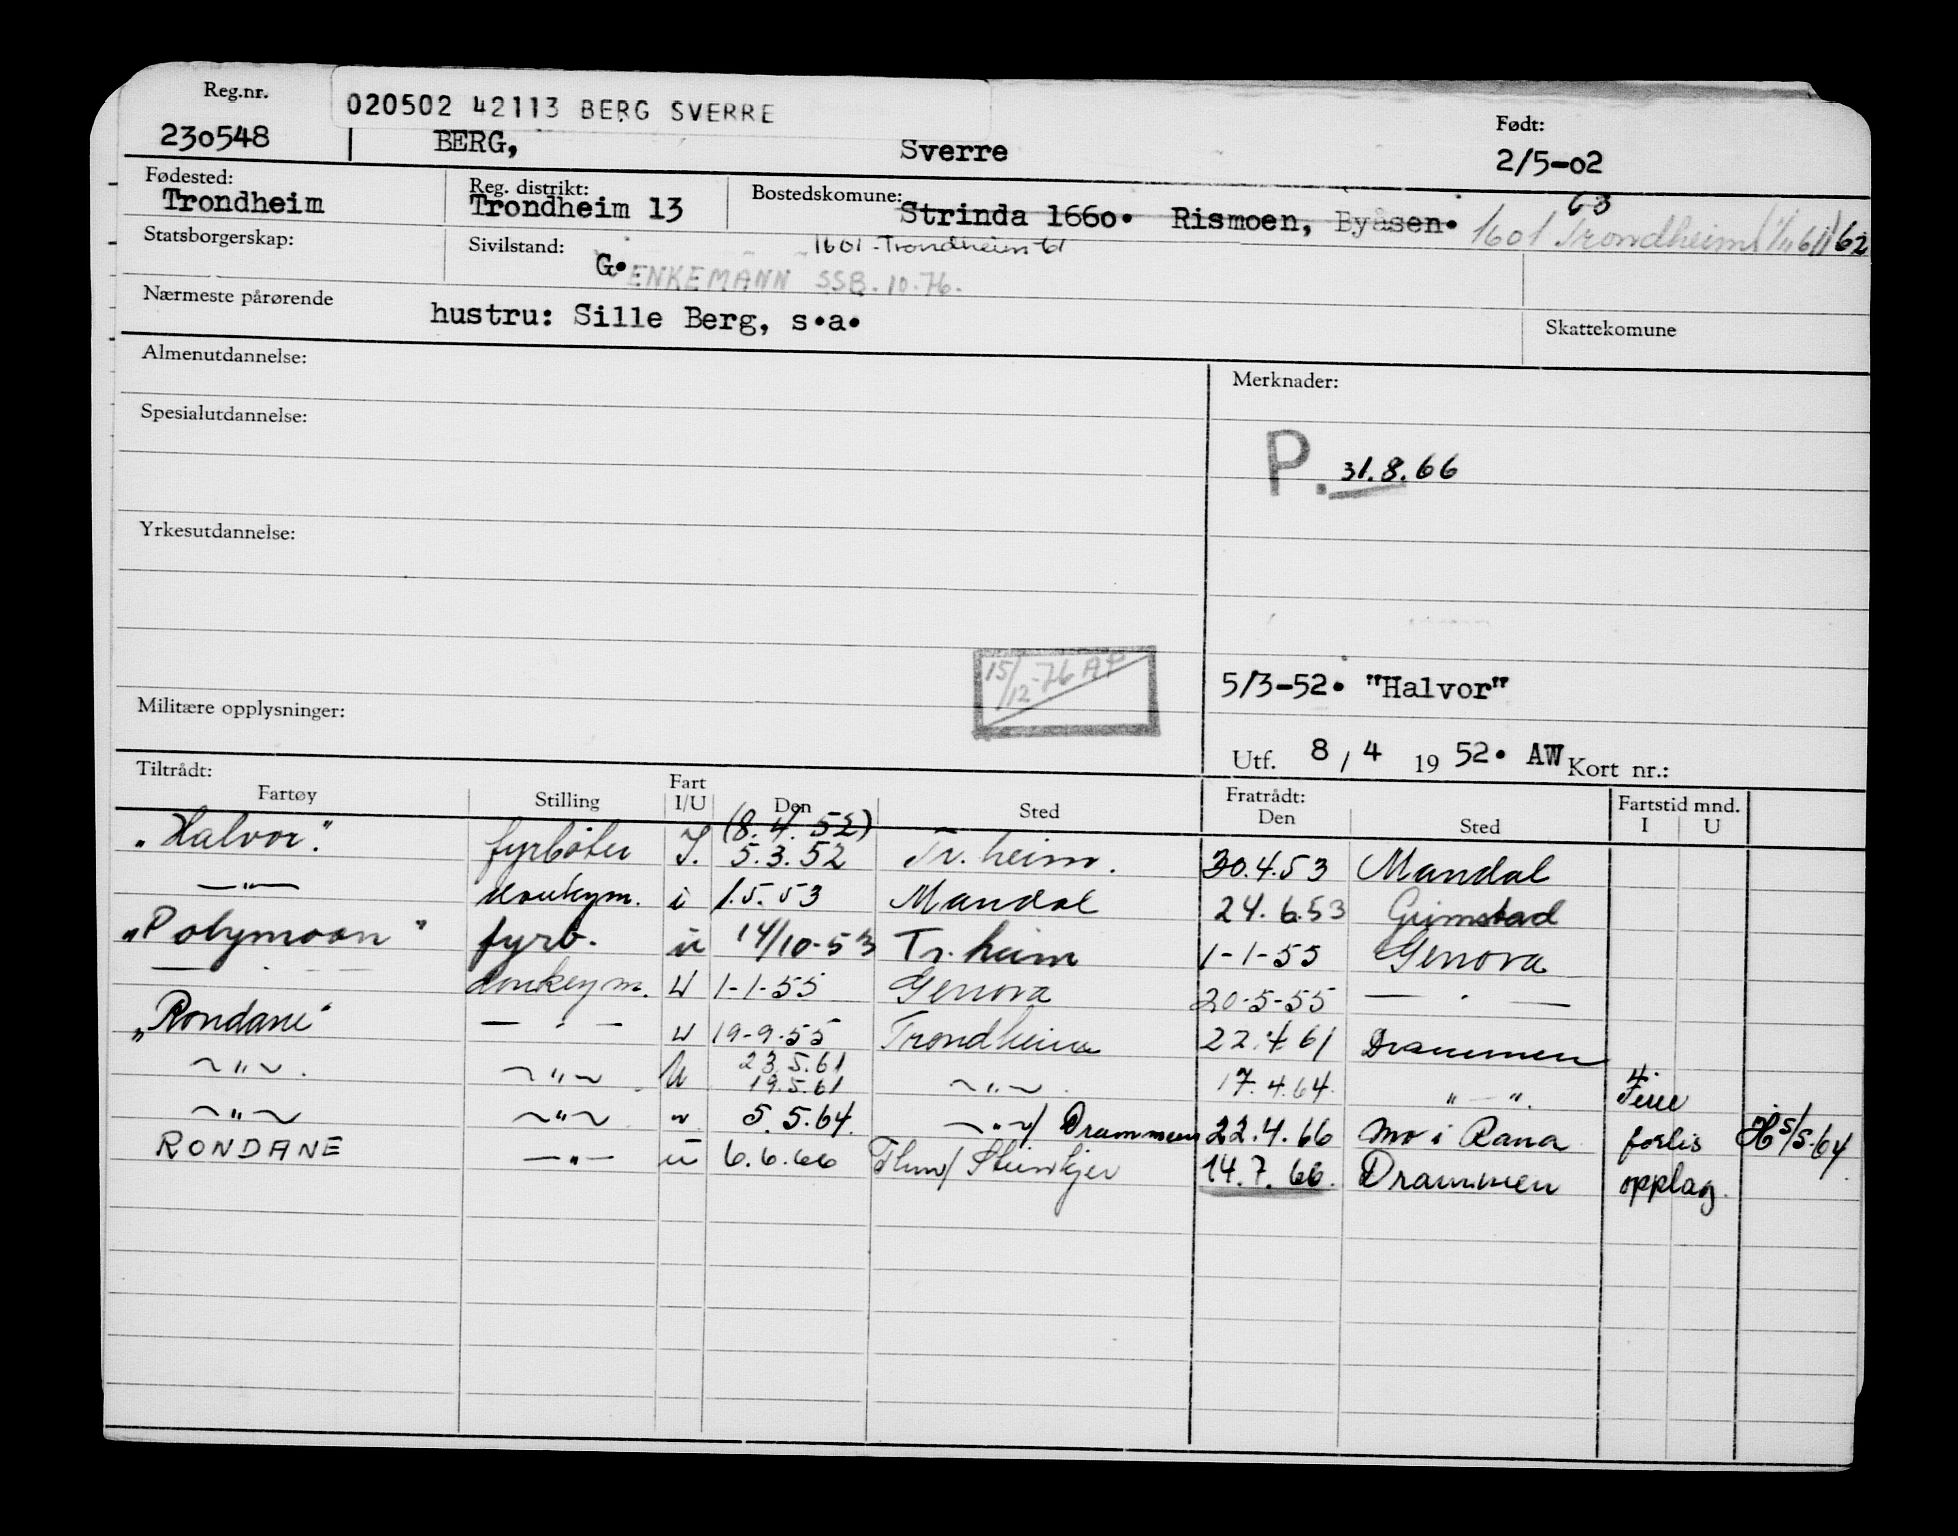 Reg.nr.
020502 42113 BERG SVERRE
Født:
230548 BERG, Sverre 2/5-02
Fødested: Reg. distrikt: Bostedskomune:
Trondheim Trondheim 13 Strinda 1660. Rismoen, Byåsen. 1601 Trondheim 63 62
Statsborgerskap: Sivilstand: 1601-Trondheim 61
G. ENKEMANN SSB.10.76.
Nærmeste pårørende hustru: Sille Berg, s.a. Skattekomune
Almenutdannelse: Merknader:
Spesialutdannelse:
P. 31.8.66
Yrkesutdannelse:
15/12-76 AF
5/3-52. "Halvor"
Militære opplysninger:
Utf. 8/4 1952. AW Kort nr.:
Tiltrådt: Fratrådt: Fartstid mnd.
Fartøy Stilling Fart I/U Den Sted Den Sted I U
(8.4.52)
"Halvor" fyrbøter I. 5.3.52 Tr.heim. 30.4.53 Mandal
—"— donkeym. i 1.5.53 Mandal 24.6.53 Grimstad
"Polymoon" fyrb. ū 14/10-53 Tr.heim 1-1-55 Genova
— " — donkeym. U 1-1-55 Genova 20-5-55 — " —
"Rondane" — " — U 19-9-55 Trondheim 22.4.61 Drammen
23.5.61
~"~. ~"~ U 19.5.61 ~"~. 17.4.64. " — ". Ferie
~"~ ~"~ " 5.5.64. ~"~/Drammen 22.4.66 Mo i Rana forlis H 5/5.64
RONDANE —"— ū 6.6.66 Thm/Steinkjer 14.7.66. Drammen opplag.